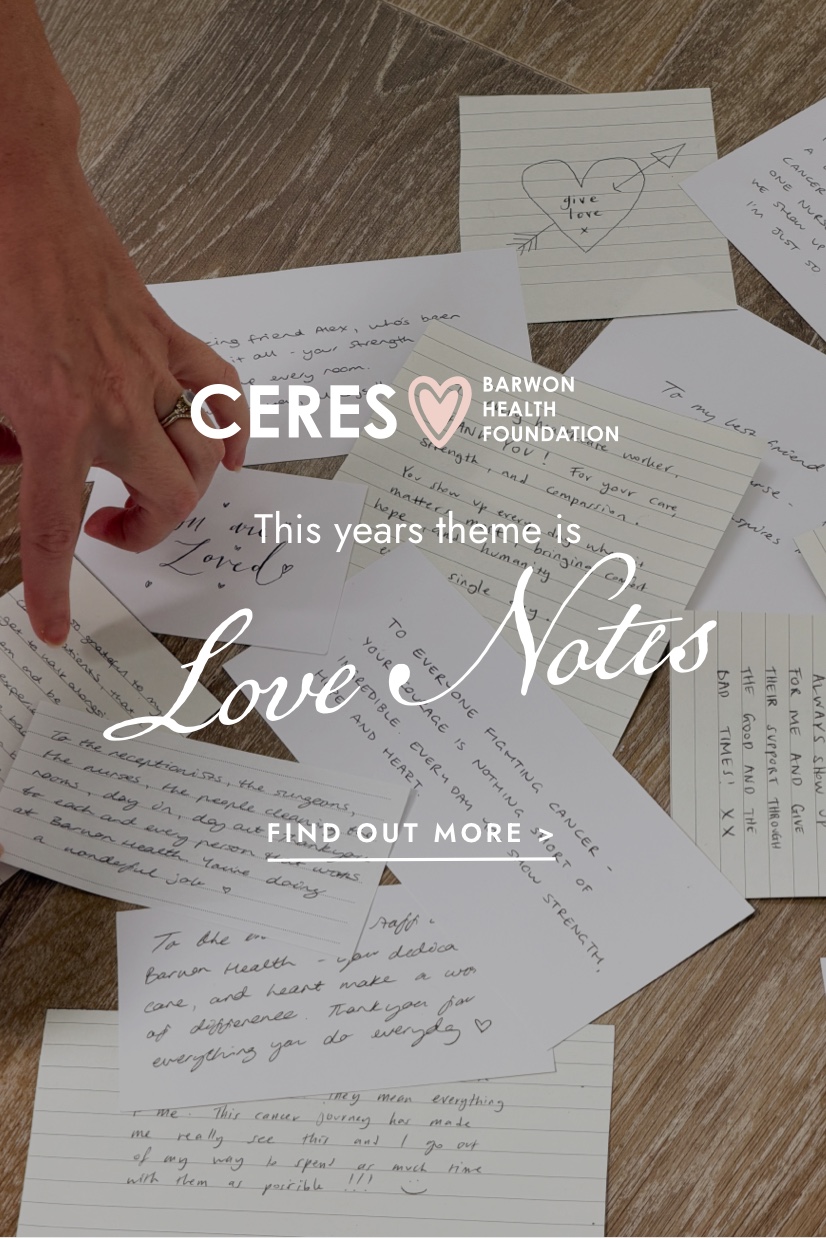 give
love
x
A
CANCER
ONE NURSE
WE SHOW UP
I'M JUST SO
friend Alex, who's been
it all - your strength
every room.
CERES
BARWON
HEALTH
FOUNDATION
To my best friend
care worker,
THANK YOU! For your care,
strength, and compassion.
You show up every day when it
matters most, bringing comfort
hope, and humanity
single day.
This years theme is
Loved
Love Notes
TO EVERYONE FIGHTING CANCER -
YOUR COURAGE IS NOTHING SHORT OF
INCREDIBLE. EVERY DAY YOU SHOW STRENGTH,
HOPE AND HEART.
ALWAYS SHOW UP
FOR ME AND GIVE
THEIR SUPPORT THROUGH
THE GOOD AND THE
BAD TIMES! XX
To the receptionists, the surgeons,
the nurses, the people cleaning the
rooms, day in, day out thankyou
to each and every person that works
at Barwon Health. You're doing
a wonderful job
FIND OUT MORE >
To the staff
Barwon Health - your dedica
care, and heart make a wor
of difference. Thankyou for
everything you do everyday
They mean everything
me. This cancer journey has made
me really see this and I go out
of my way to spend as much time
with them as possible !!!